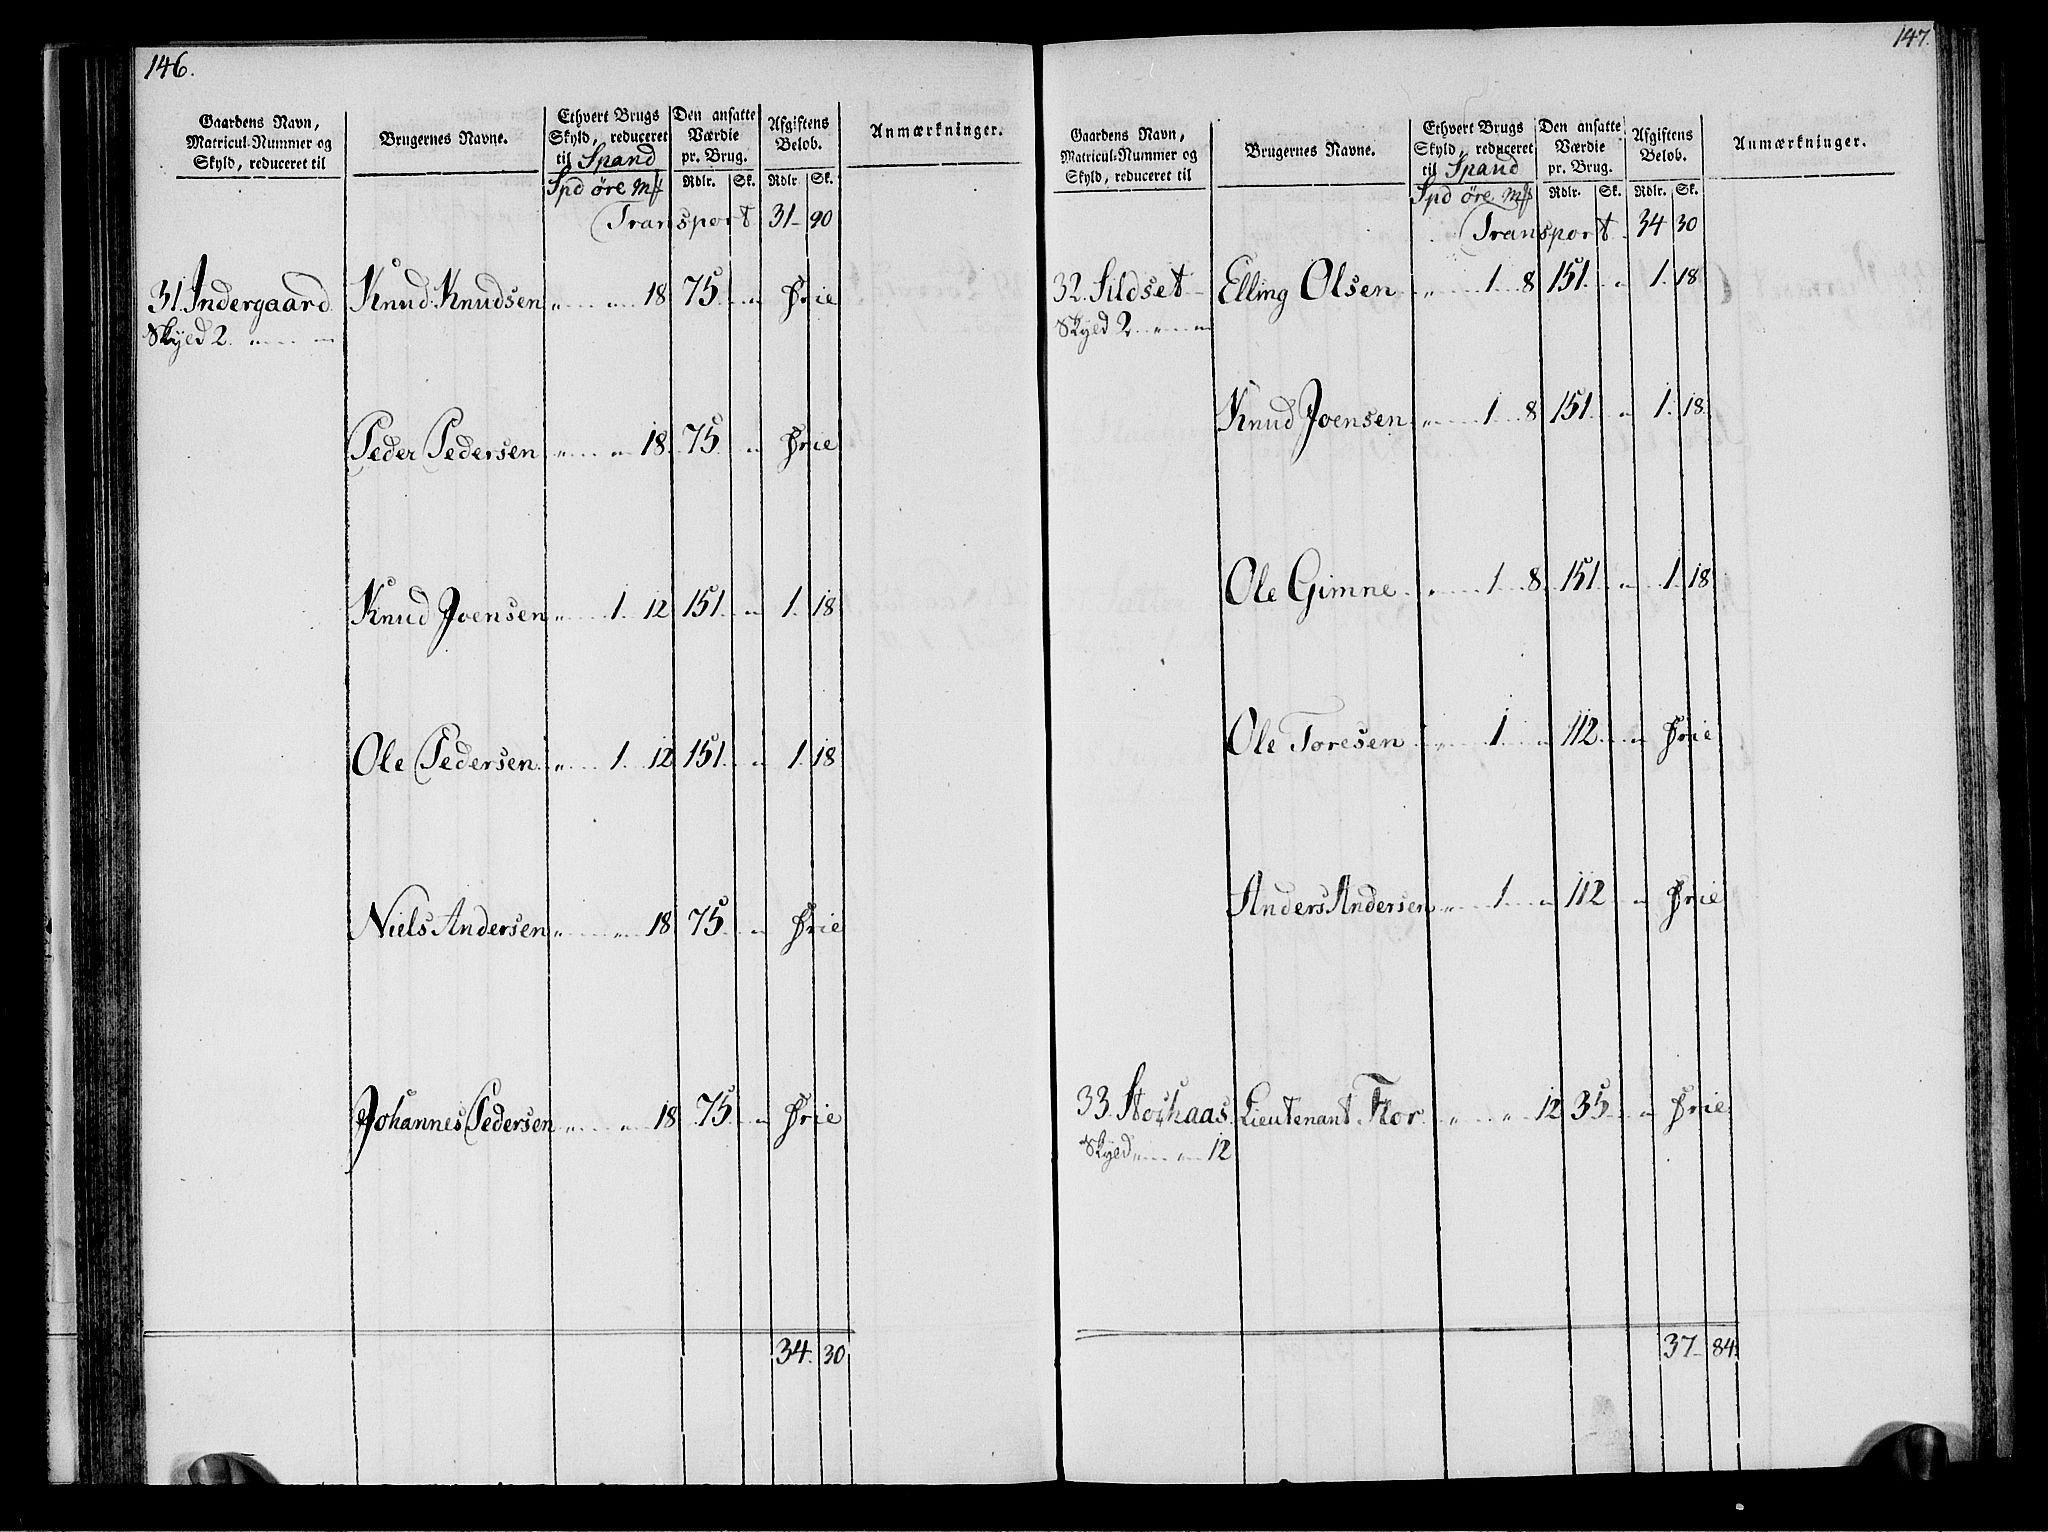 146.
Gaardens Navn, Matricul-Nummer og Skyld, reduceret til | Brugernes Navne. | Ethvert Brugs Skyld, reduceret til Spand | Den ansatte Værdie pr. Brug. | Afgiftens Belob. | Anmærkninger.
Spd øre m͞k | Rdlr. | Sk. | Rdlr. | Sk.
Transport 31 90
31. Indergaard Knud Knudsen „ „ 18 75 „ Frie
Skyld 2. „ „
Peder Pedersen „ „ 18. 75 „ Frie
Knud Joensen „ 1. 12 151 „ 1. 18
Ole Pedersen „ 1. 12 151 „ 1. 18
Niels Andersen „ „ 18 75 „ Frie
Johannes Pedersen „ „ 18 75 „ Frie
34. 30
147.
Gaardens Navn, Matricul-Nummer og Skyld, reduceret til | Brugernes Navne. | Ethvert Brugs Skyld, reduceret til Spand | Den ansatte Værdie pr. Brug. | Afgiftens Belob. | Anmærkninger.
Spd øre m͞k | Rdlr. | Sk. | Rdlr. | Sk.
Transport 34 30
32. Sildset Elling Olsen „ 1 8 151 „ 1. 18
Skyld 2. „ „
Knud Joensen „ 1 8 151 „ 1. 18
Ole Gimne „ 1 8 151 „ 1 18
Ole Toresen „ 1 „ 112 „ Frie
Anders Andersen „ 1 „ 112 „ Frie
33. Storhaas Lieutenant Flor „ „ 12 35 „ Frie
Skyld „ „ 12
37 84